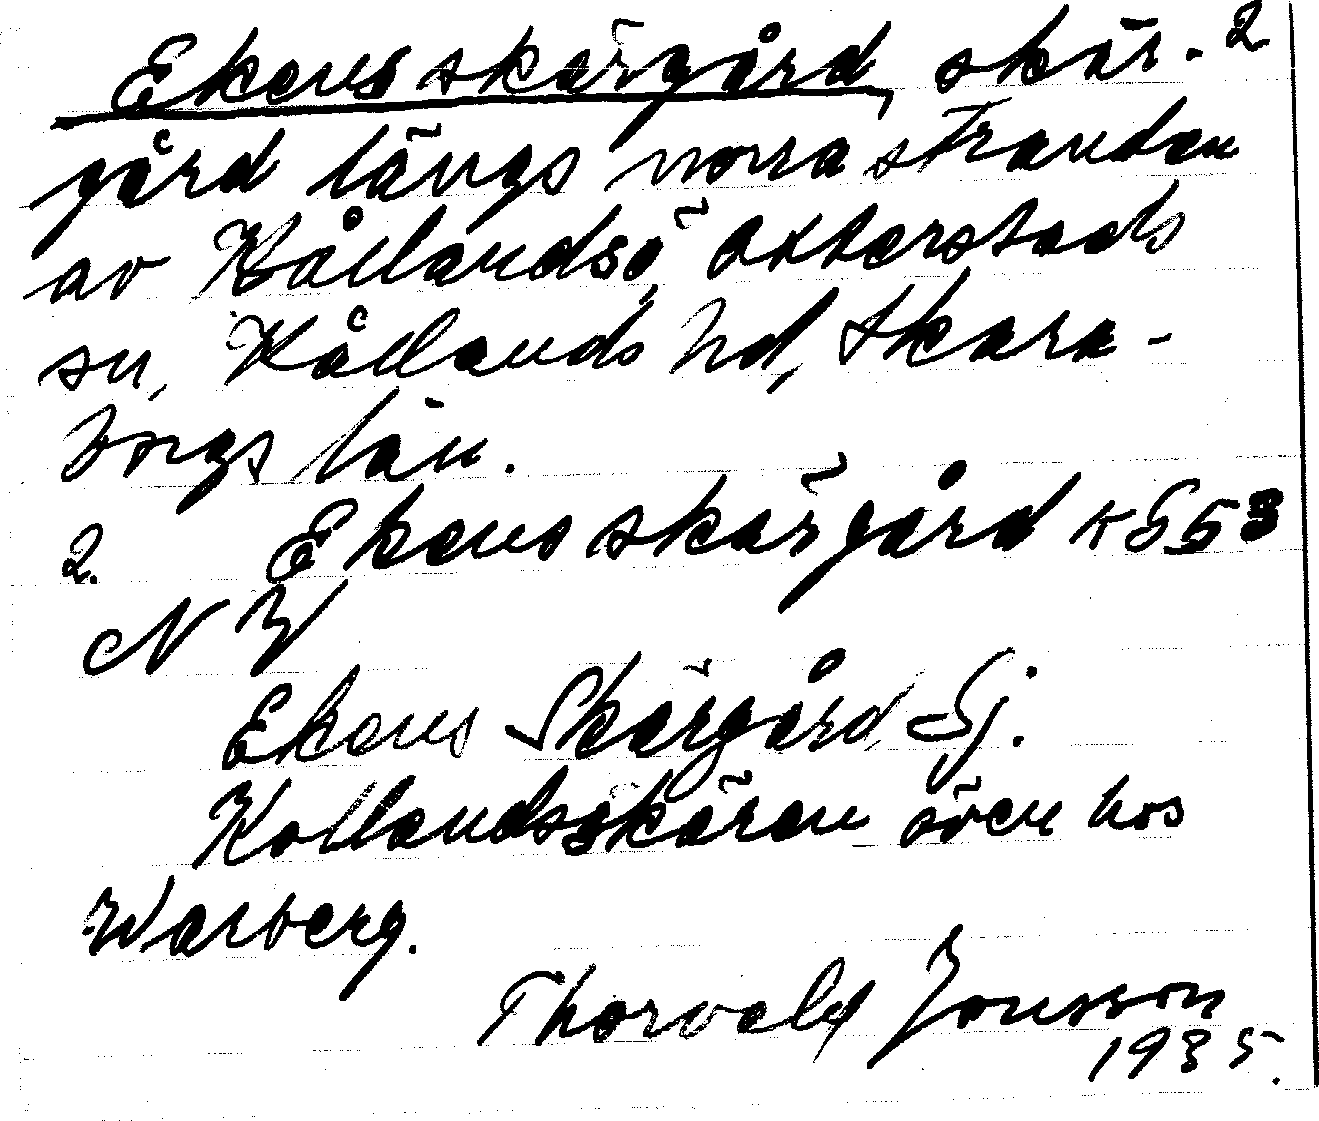 Ekens skärgård, skär- 2
gård längs norra stranden
av Kållandsö, Otterstads
sn, Kållands hd, Skara-
borgs län.
2. Ekens skärgård KS53
NV
Ekens Skärgård Sj.
Kollandsskären även hos
Warberg.
Thorvald Jonsson
1935.